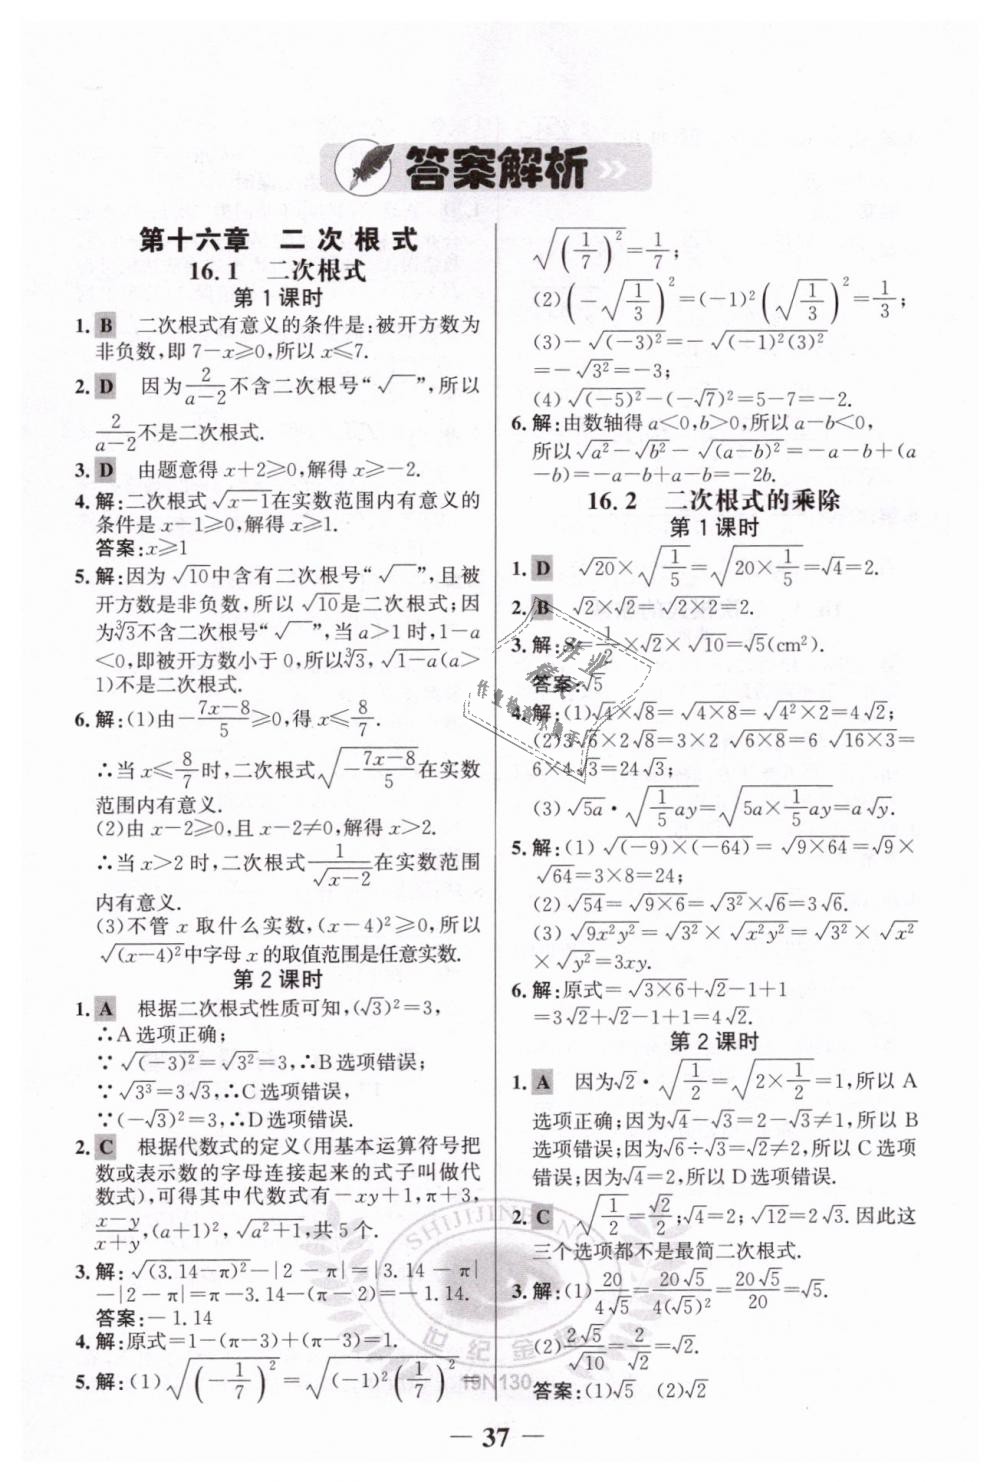 答案解析
第十六章 二次根式
16.1 二次根式
第1课时
1. B 二次根式有意义的条件是:被开方数为
非负数,即 7-x≥0,所以 x≤7.
2. D 因为2/(a-2)不含二次根号“√ ”,所以
2/(a-2)不是二次根式.
3. D 由题意得 x+2≥0,解得 x≥-2.
4. 解:二次根式√(x-1)在实数范围内有意义的
条件是 x-1≥0,解得 x≥1.
答案:x≥1
5. 解:因为√10中含有二次根号“√ ”,且被
开方数是非负数,所以√10是二次根式;因
为∛3不含二次根号“√ ”,当 a>1 时,1-a
<0,即被开方数小于 0,所以∛3,√(1-a)(a>
1)不是二次根式.
6. 解:(1)由-(7x-8)/5≥0,得 x≤8/7.
∴当 x≤8/7时,二次根式√(-(7x-8)/5)在实数
范围内有意义.
(2)由 x-2≥0,且 x-2≠0,解得 x>2.
∴当 x>2 时,二次根式1/√(x-2)在实数范围
内有意义.
(3)不管 x 取什么实数,(x-4)²≥0,所以
√((x-4)²)中字母 x 的取值范围是任意实数.
第2课时
1. A 根据二次根式性质可知,(√3)²=3,
∴A 选项正确;
∵√((-3)²)=√(3²)=3,∴B 选项错误;
∵√(3³)=3√3,∴C 选项错误,
∵(-√3)²=3,∴D 选项错误.
2. C 根据代数式的定义(用基本运算符号把
数或表示数的字母连接起来的式子叫做代
数式),可得其中代数式有-xy+1,π+3,
(x-y)/(x+y),(a+1)²,√(a²+1),共 5 个.
3. 解:√((3.14-π)²)-|2-π|=|3.14-π|
-|2-π|=π-3.14-(π-2)=-1.14.
答案:-1.14
4. 解:原式=1-(π-3)+(π-3)=1.
5. 解:(1)√((-1/7)²)=√((-1)²(1/7)²)=
√((1/7)²)=1/7;
(2)(-√(1/3))²=(-1)²(√(1/3))²=1/3;
(3)-√((-3)²)=-√((-1)²(3)²)
=-√(3²)=-3;
(4)√((-5)²)-(-√7)²=5-7=-2.
6. 解:由数轴得 a<0,b>0,所以 a-b<0,
所以√(a²)-√(b²)-√((a-b)²)=-a-b+(a
-b)=-a-b+a-b=-2b.
16.2 二次根式的乘除
第1课时
1. D √20×√(1/5)=√(20×1/5)=√4=2.
2. B √2×√2=√(2×2)=2.
3. 解:S=1/2×√2×√10=√5(cm²).
答案:√5
4. 解:(1)√4×√8=√(4×8)=√(4²×2)=4√2;
(2)3√6×2√8=3×2√(6×8)=6√(16×3)=
6×4√3=24√3;
(3)√(5a)·√(1/5 ay)=√(5a×1/5 ay)=a√y.
5. 解:(1)√((-9)×(-64))=√(9×64)=√9×
√64=3×8=24;
(2)√54=√(9×6)=√(3²)×√6=3√6.
(3)√(9x²y²)=√(3²)×√(x²y²)=√(3²)×√(x²)
×√(y²)=3xy.
6. 解:原式=√(3×6)+√2-1+1
=3√2+√2-1+1=4√2.
第2课时
1. A 因为√2·√(1/2)=√(2×1/2)=1,所以 A
选项正确;因为√4-√3=2-√3≠1,所以 B
选项错误;因为√6÷√3=√2≠2,所以 C 选项
错误;因为√4=2,所以 D 选项错误.
2. C √(1/2)=√2/2;√4=2;√12=2√3.因此这
三个选项都不是最简二次根式.
3. 解:(1)20/(4√5)=20√5/(4(√5)²)=20√5/20=√5.
(2)2√5/√10=2/√2=√2.
答案:(1)√5 (2)√2
作业
作业检查小帮手
SHIJIJINBANG
世纪金榜
19N130
— 37 —